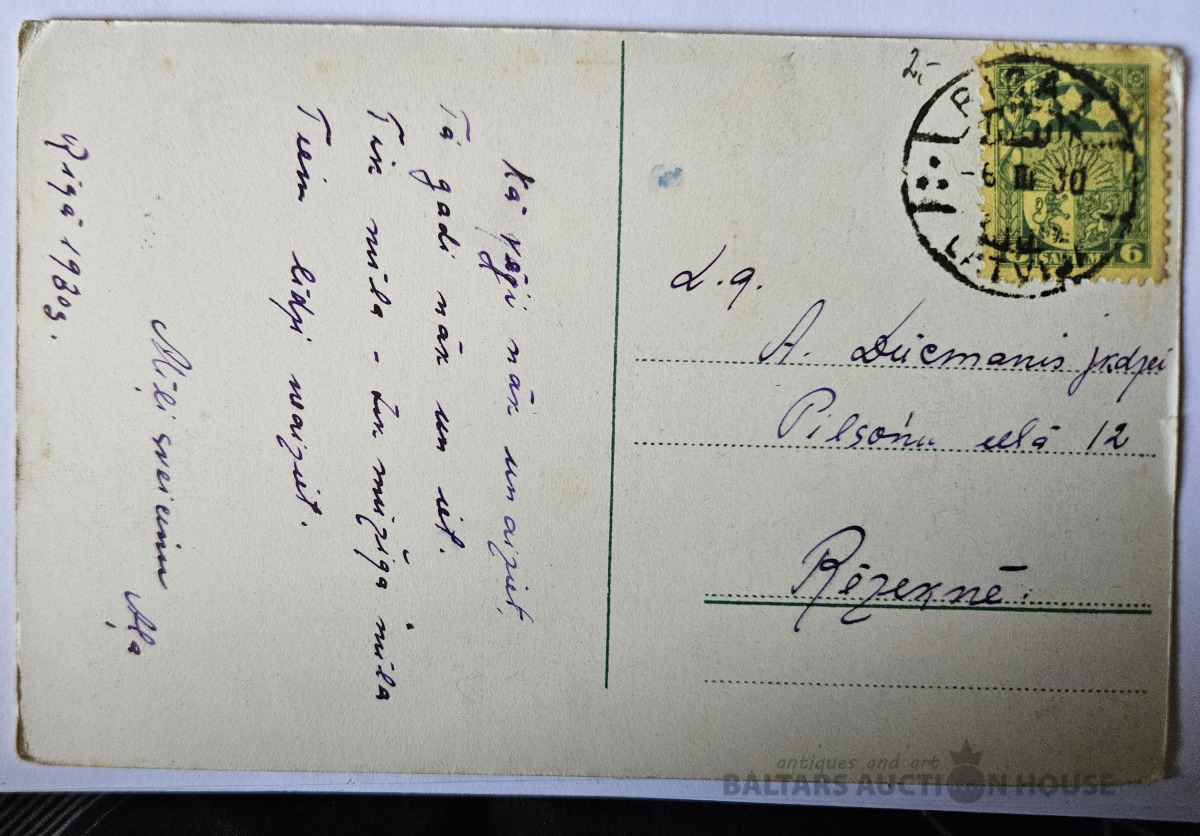 Kā vēji nāk un aiziet,
Tā gadi nāk un iet.
Tik mīla - un mūžīga mīla
Tiem līdzi neaiziet.
Mīļi sveicinu
Aļa
Rīgā 1930g.
2,-
RIGA
-6 III 30
LATVIJA
6 6
L.g.
A. Dūcmanis jkdzei
Pilsoņu ielā 12
Rēzeknē.
antiques and art
BALTARS AUCTION HOUSE